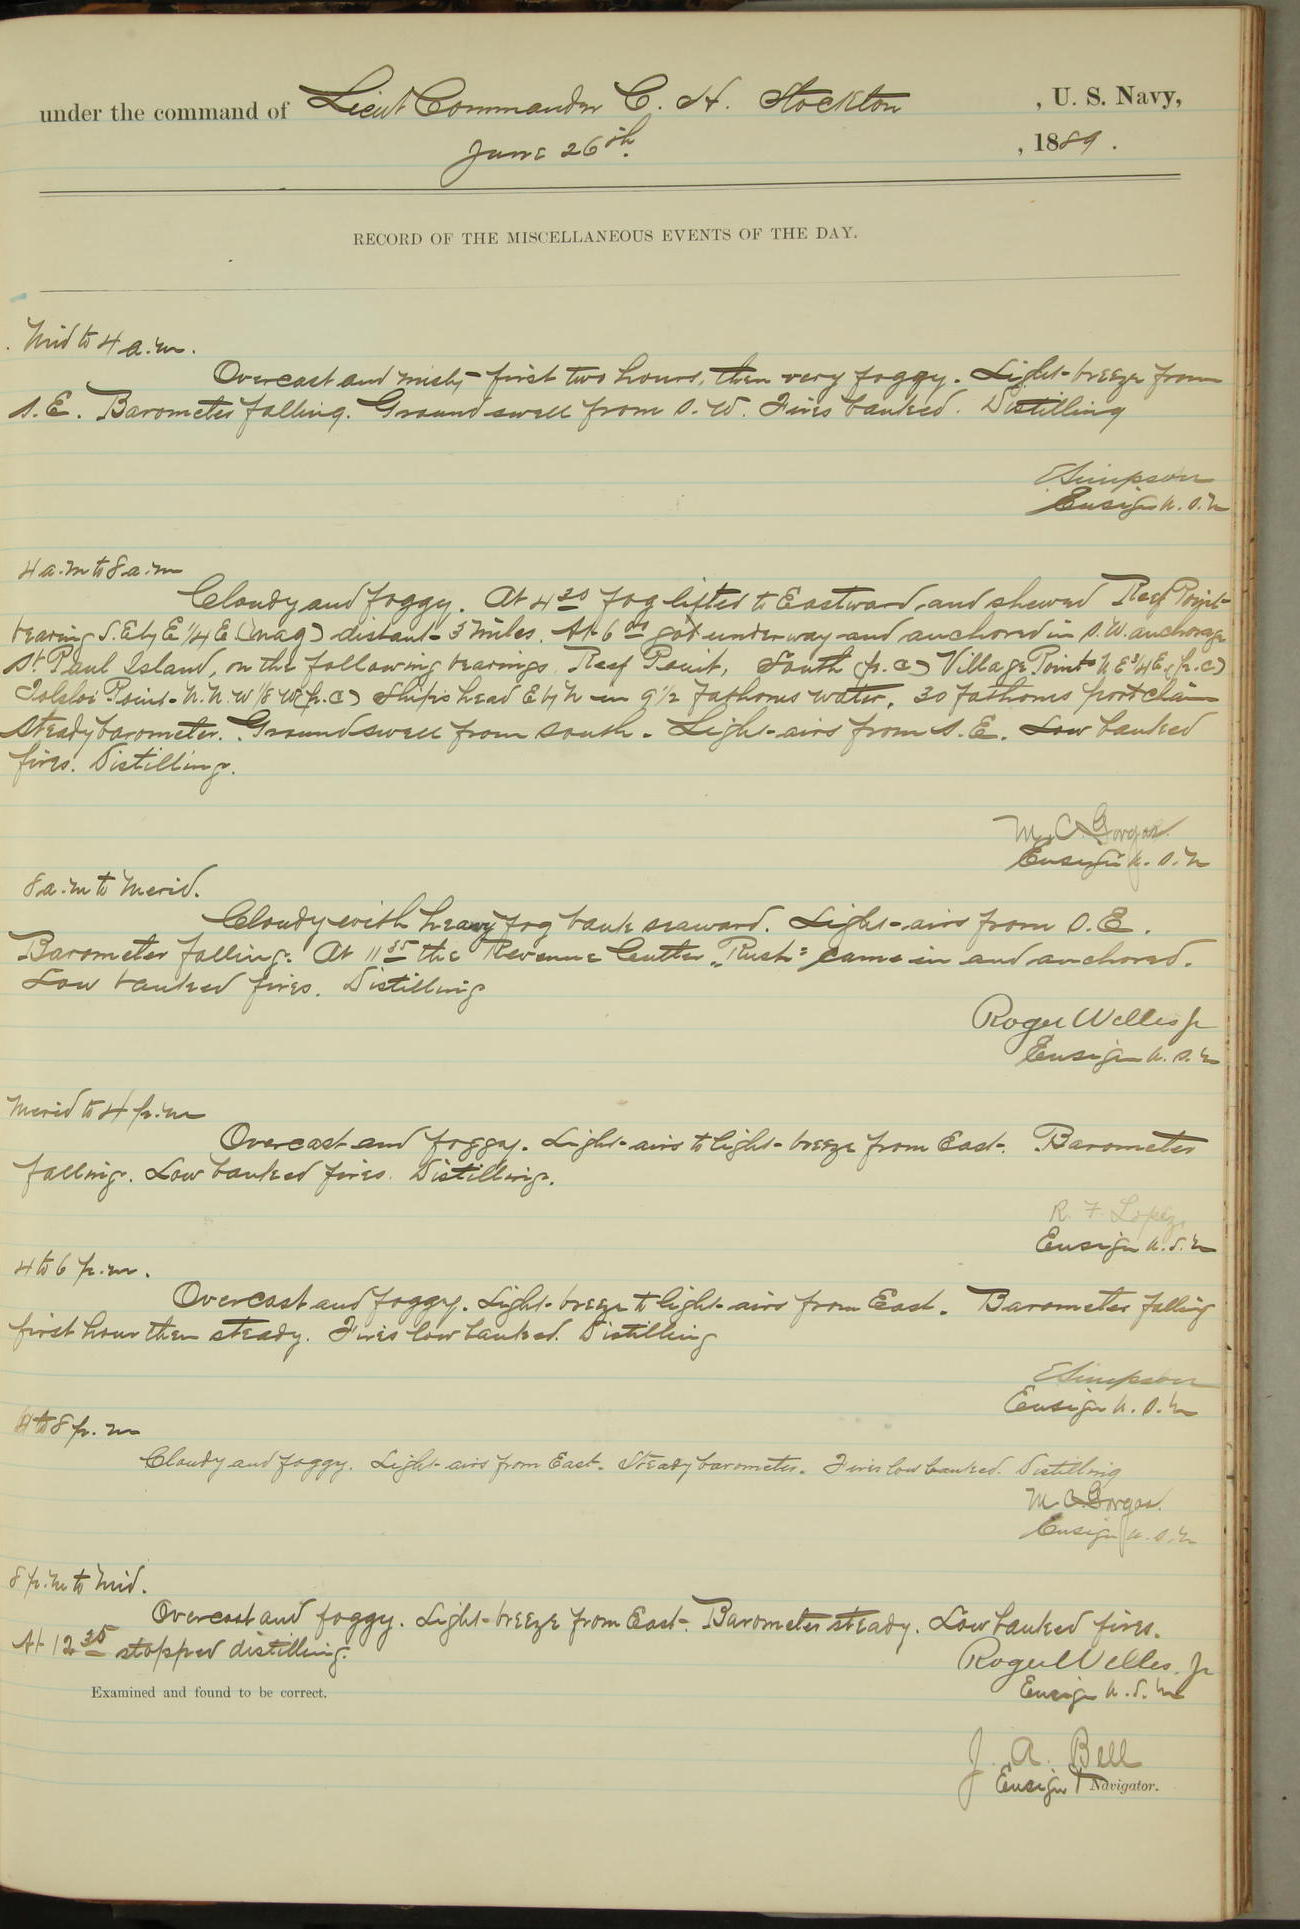 under the command of Lieut Commander C. H. Stockton , U. S. Navy,
June 26th. , 1889.
RECORD OF THE MISCELLANEOUS EVENTS OF THE DAY.
Mid to 4 a.m.
Overcast and misty first two hours, then very foggy. Light breeze from
S.E. Barometer falling. Ground swell from S.W. Fires banked. Distilling
E Simpson
Ensign U.S.N
4 a.m to 8 a.m
Cloudy and foggy. At 4 30 fog lifted to Eastward, and shewed Reef Point
bearing S.E by E 1/4 E (mag) distant 3 miles. At 6 got underway and anchored in S.W. anchorage
St Paul Island, on the following bearings. Reef Point, South (p.c) Village Point N E 3/4 E (p.c)
Tolstoi Point N.N.W 1/8 W (p.c) Ship's head E by N in 9 1/2 fathoms water, 30 fathoms port chain
Steady barometer. Ground swell from south. Light airs from S.E. Low banked
fires. Distilling.
M. C. Gorgas.
Ensign U.S.N
8 a.m to Merid.
Cloudy with heavy fog bank seaward. Light airs from S.E.
Barometer falling. At 11 35 the Revenue Cutter "Rush" came in and anchored.
Low banked fires. Distilling
Roger Welles Jr
Ensign U.S.N
Merid to 4 p.m
Overcast and foggy. Light airs to light breeze from East. Barometer
falling. Low banked fires. Distilling.
R. F. Lopez,
Ensign U.S.N
4 to 6 p.m.
Overcast and foggy. Light breeze to light airs from East. Barometer falling
first hour then steady. Fires low banked. Distilling
E Simpson
Ensign U.S.N
to 8 p.m
Cloudy and foggy. Light airs from East. Steady barometer. Fires low banked. Distilling
M. C. Gorgas.
Ensign U.S.N
8 p.m to Mid.
Overcast and foggy. Light breeze from East. Barometer steady. Low banked fires.
At 12 35 stopped distilling.
Roger Welles. Jr
Ensign U.S.N
Examined and found to be correct.
J. A. Bell
Ensign Navigator.